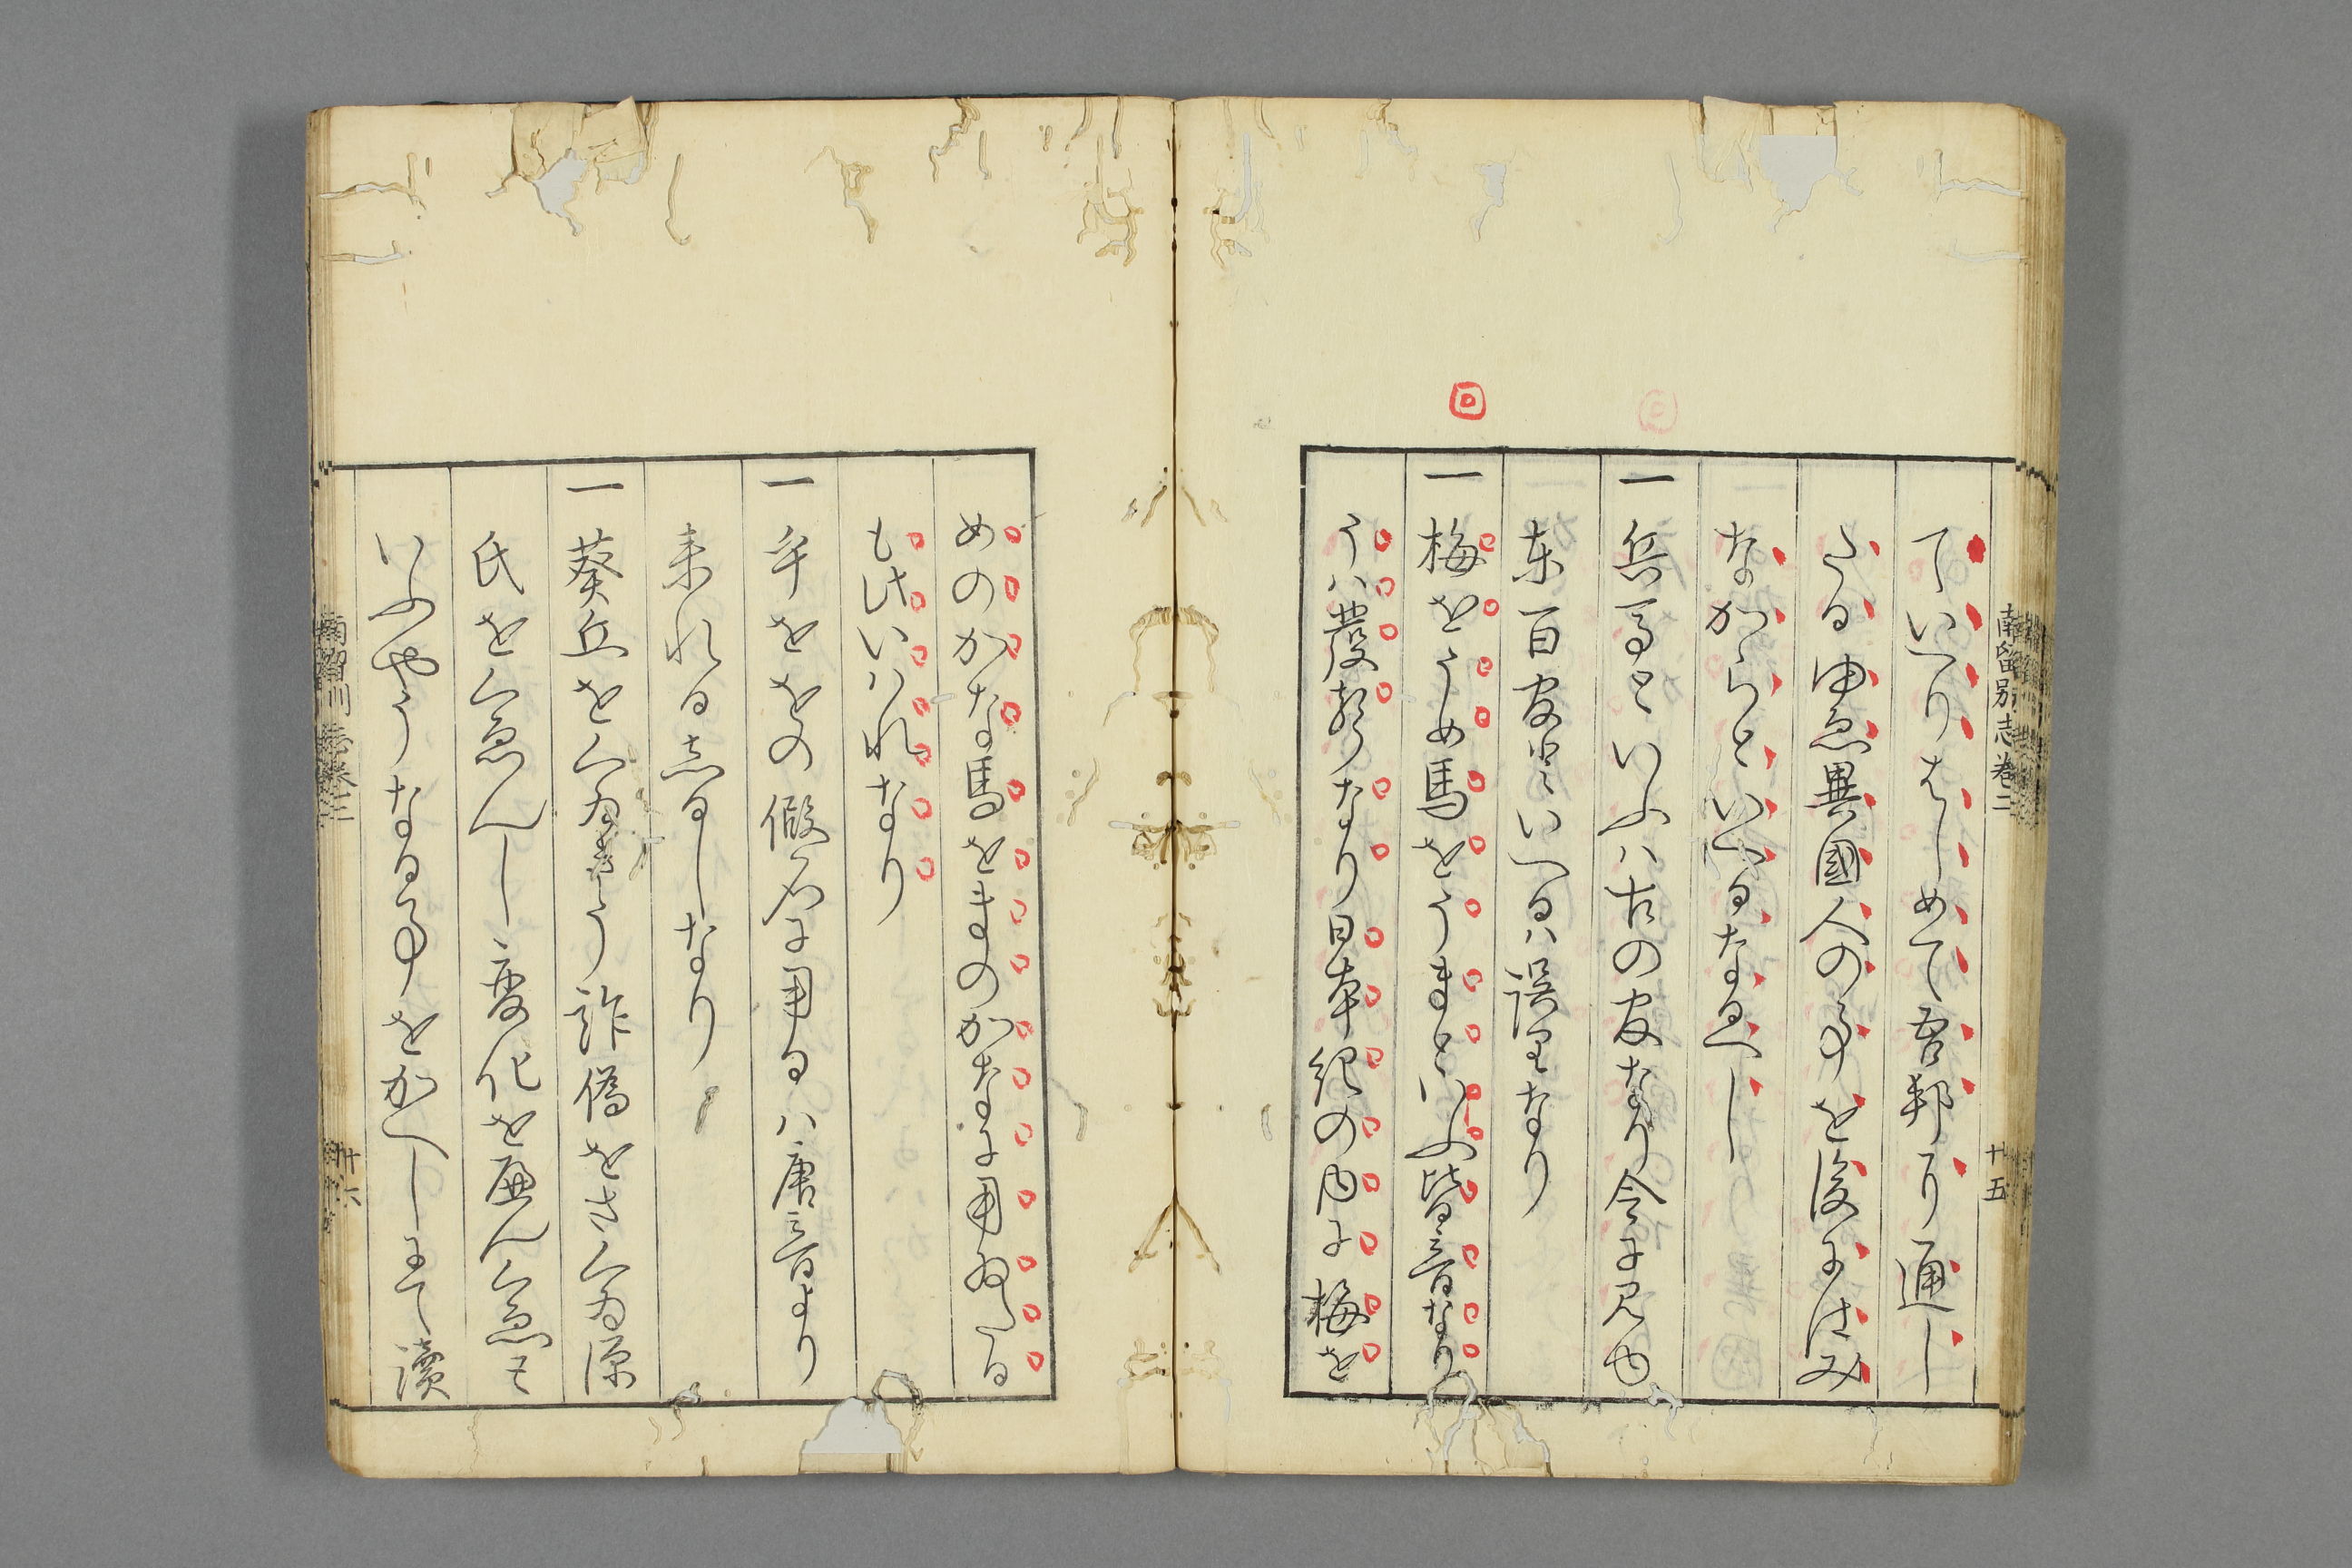 南留別志巻二
十五
ていへりはしめて吾邦より通し
たるゆゑ異國人の事を後にはみ
なからといへるなるへし
一兵馬といふハ古の官なり今に見也
東百官にといへるハ誤里なり
一梅をうめ馬をうまといふ皆音なり
うハ發声なり日本紀の内に梅を
めのかな馬をまのかなに用ゐたる
も此いハれなり
一乎ををの假名に用るハ唐音より
来れるあるしなり
一葵丘をくゐきう詐偽をさくゐ源
氏をくゑんし変化を廻んくゑも
いふやうなる事をかへしにて讀
十六